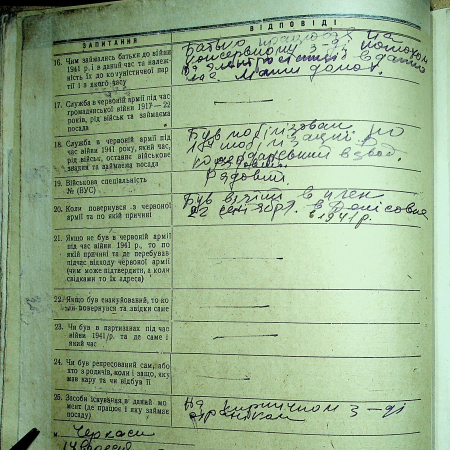 ЗАПИТАННЯ
ВІДПОВІДІ
16. Чим займались батьки до війни
1941 р. і в даний час та належ-
ність їх до комуністичної пар-
тії і з якого часу
Батько працював на
консервному з-ді
в дано
час
17. Служба в червоній армії під час
громадянської війни 1917—22
роках, рід військ та займаєма
посада
18. Служба в червоній армії під
час війни 1941 року, який час,
рід військ, останнє військове
звання та займаєма посада
Був мобілізован по
мобілізації
взвод.
Рядовий
19. Військова спеціальність
№ (ВУС)
20. Коли повернувся з червоної
армії та по якій причині
Був взятий в плен
22 сентября. в
в 1941 р.
21. Якщо не був в червоній армії
під час війни 1941 р., то по
якій причині та де перебував
підчас відходу червоної армії
(чим може підтвердити, а коли
свідками то їх адреса)
22. Якщо був енакуйований, то ко-
ли повернувся та звідки саме
23. Чи був в партизанах під час
війни 1941 р. та де саме і
який час
24. Чи був репресований сам, або
хто з родичів, коли і защо, яку
мав кару та чи відбув її
25. Засоби існування в даний мо-
мент (де працює і яку займає
посаду)
На кирпичном з-ді
м. Черкаси